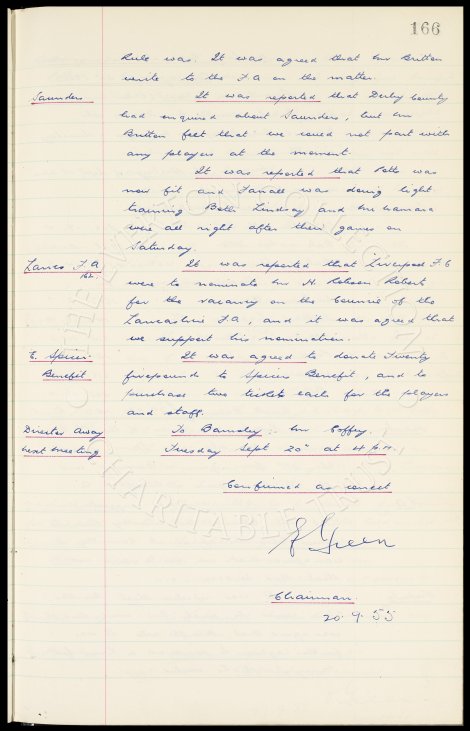 166
Rule was. It was agreed that Mr Britton
write to the F.A on the matter.
Saunders. It was reported that Derby County
had enquired about Saunders, but Mr
Britton felt that we could not part with
any players at the moment.
It was reported that Potts was
now fit and Farrall was doing light
training Both Lindsay and McNamara
were all right after their games on
Saturday.
Lancs F.A It was reported that Liverpool F.C
were to nominate Mr H. Robson Roberts
for the vacancy on the Council of the
Lancashire F.A, and it was agreed that
we support his nomination.
E. Spicer It was agreed to donate Twenty
Benefit fivepounds to Spicers Benefit, and to
purchase two tickets each for the players
and staff.
Director away To Barnsley :- Mr Coffey.
next meeting Tuesday Sept 20th at 4 p.m.
Confirmed as correct
E Green
Chairman.
20.9.55
THE EVERTON COLLECTION
CHARITABLE TRUST